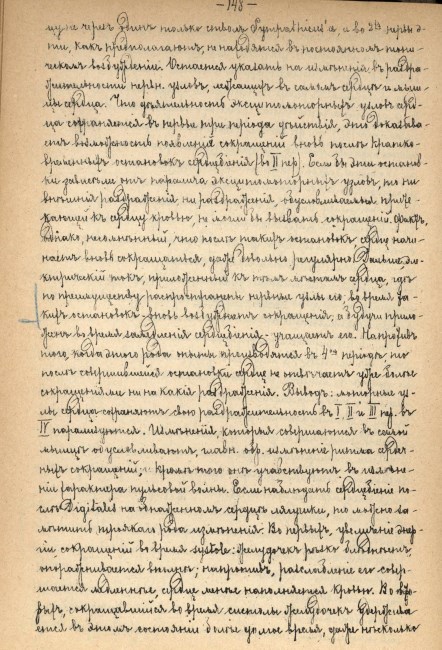 - 148 -
му на через один только стволъ Sympathicus'а, и во 2хъ нервы э-
ти, какъ предполагаютъ, не находятся въ постоянномъ тони-
ческомъ возбужденіи. Остается указать на измѣненія въ раздра-
жительности нервн. узловъ, лежащихъ въ самомъ сердцѣ и мыш-
цы сердца. Что дѣятельность эксцитомоторныхъ узловъ серд-
ца сохраняется въ первые три періода дѣйствія, это доказыва-
етъ возможность появленія сокращеній вновь послѣ кратко-
временныхъ остановокъ сердцебіенія (во II пер). Если бъ эти останов-
ки зависѣли отъ паралича эксцитомоторныхъ узловъ, то ни
внѣшнія раздраженія, ни раздраженія, обусловливаемыя прите-
кающей къ сердцу кровью, не могли бы вызвать сокращеній. Фактъ,
однако, несомнѣнный, что послѣ такихъ остановокъ сердце начи-
наетъ вновь сокращаться, даже довольно регулярно. Дальше эле-
ктрическій токъ, приложенный къ тѣмъ мѣстамъ сердца, гдѣ
по преимуществу распространены нервные узлы его, во время та-
кихъ остановокъ вновь возбуждаетъ сокращенія, а будучи прило-
женъ во время замедленія сердцебіенія - учащаетъ его. Напротивъ
того, когда этого рода опыты производятся въ 4мъ періодѣ, то
послѣ совершившейся остановки сердце не отвѣчаетъ уже болѣе
сокращеніями ни на какія раздраженія. Выводъ: моторные уз-
лы сердца сохраняютъ свою раздражительность въ I, II и III пер. въ
IV парализуются. Измѣненія, которыя совершаются въ самой
мышцѣ обусловливаютъ, главн. обр. измѣненіе ритма сердеч-
ныхъ сокращеній; кромѣ того они участвуютъ въ измѣне-
ніи характера пульсовой волны. Если наблюдать сердцебіеніе по-
слѣ Digitalis на обнаженномъ сердцѣ лягушки, то можно за-
мѣтить троякаго рода измѣненія. Во первыхъ, увеличеніе энер-
гіи сокращеній во время systole: желудочекъ рѣзко
опоражнивается вполнѣ; напротивъ, разслабленіе его совер-
шается медленнѣе, сердце менѣе наполняется кровью. Во вто-
рыхъ, сокращавшійся во время систолы желудочекъ удержива-
ется въ этомъ состояніи болѣе долгое время, даже нѣсколько